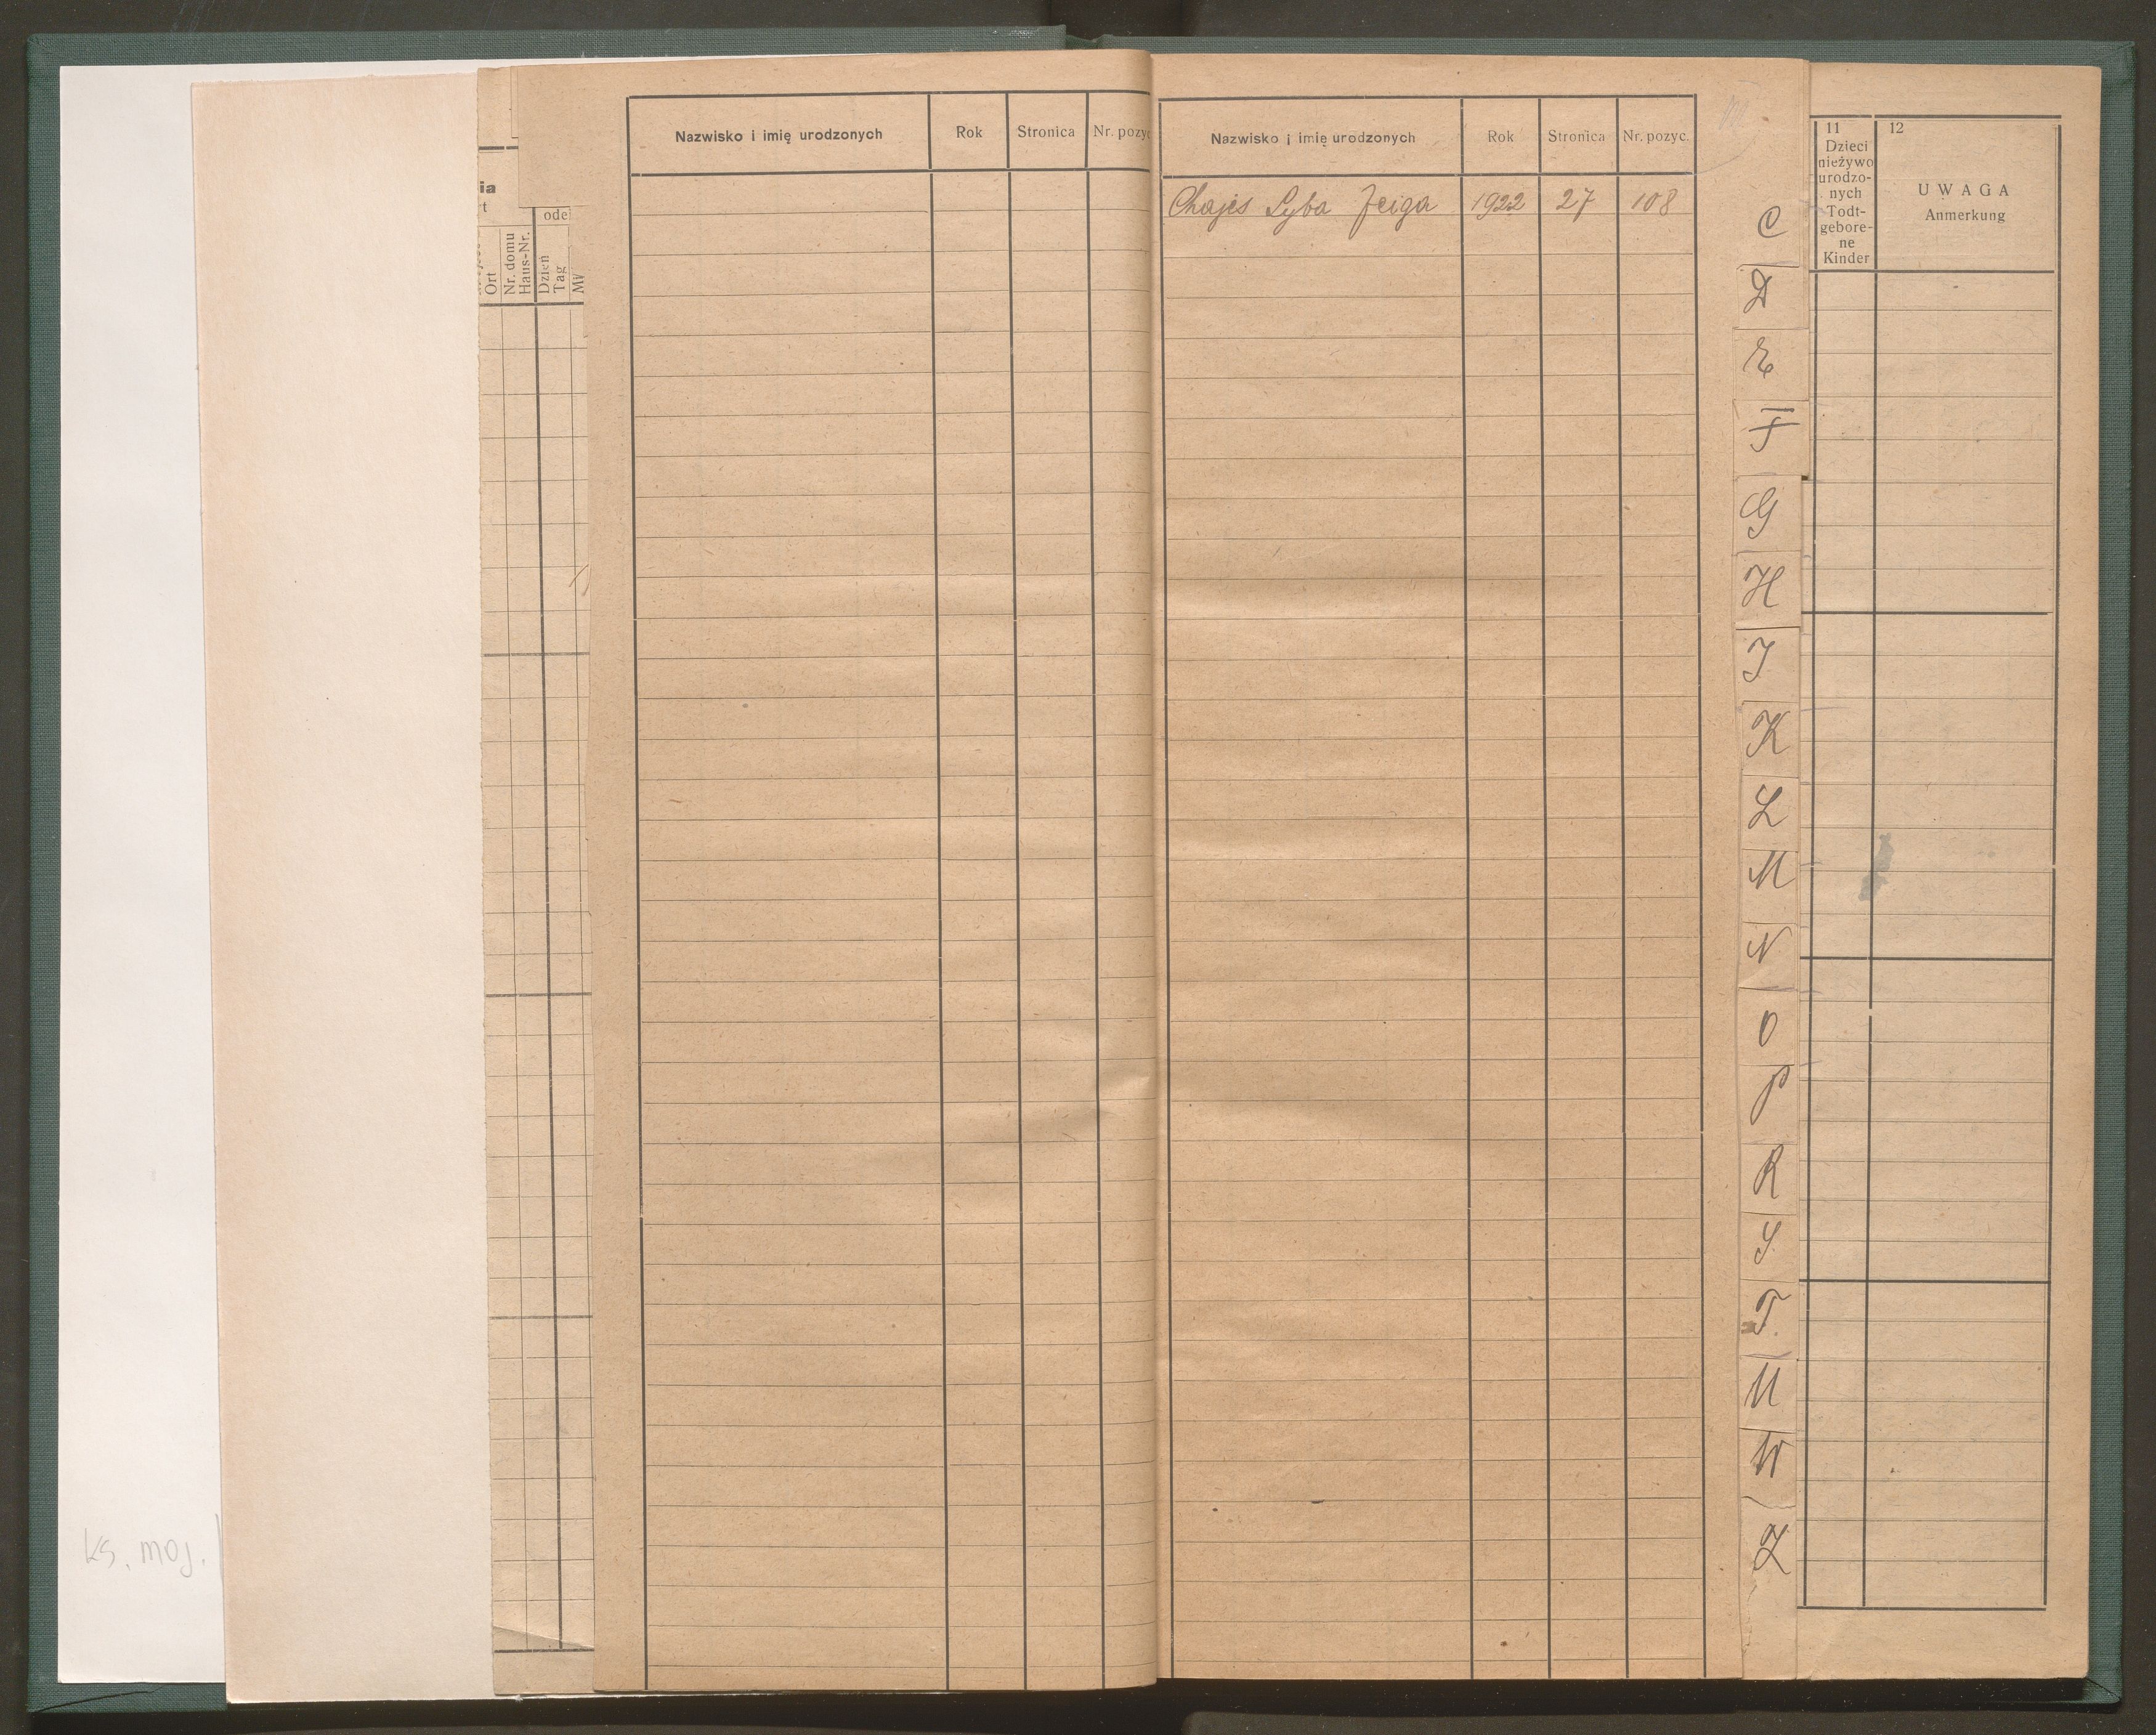 ia
t
ode
Ort
Nr. domu
Haus-Nr.
Dzień
Tag
Nazwisko i imię urodzonych Rok Stronica Nr. pozyc
Nazwisko i imię urodzonych Rok Stronica Nr. pozyc.
Chajes Syba Feiga 1922 27 108
C
D
E
F
G
H
I
K
L
M
N
O
P
R
S
T
U
W
Z
11 12
Dzieci
nieżywo
urodzo-
nych
Todt-
gebore-
ne
Kinder
UWAGA
Anmerkung
ks. moj.